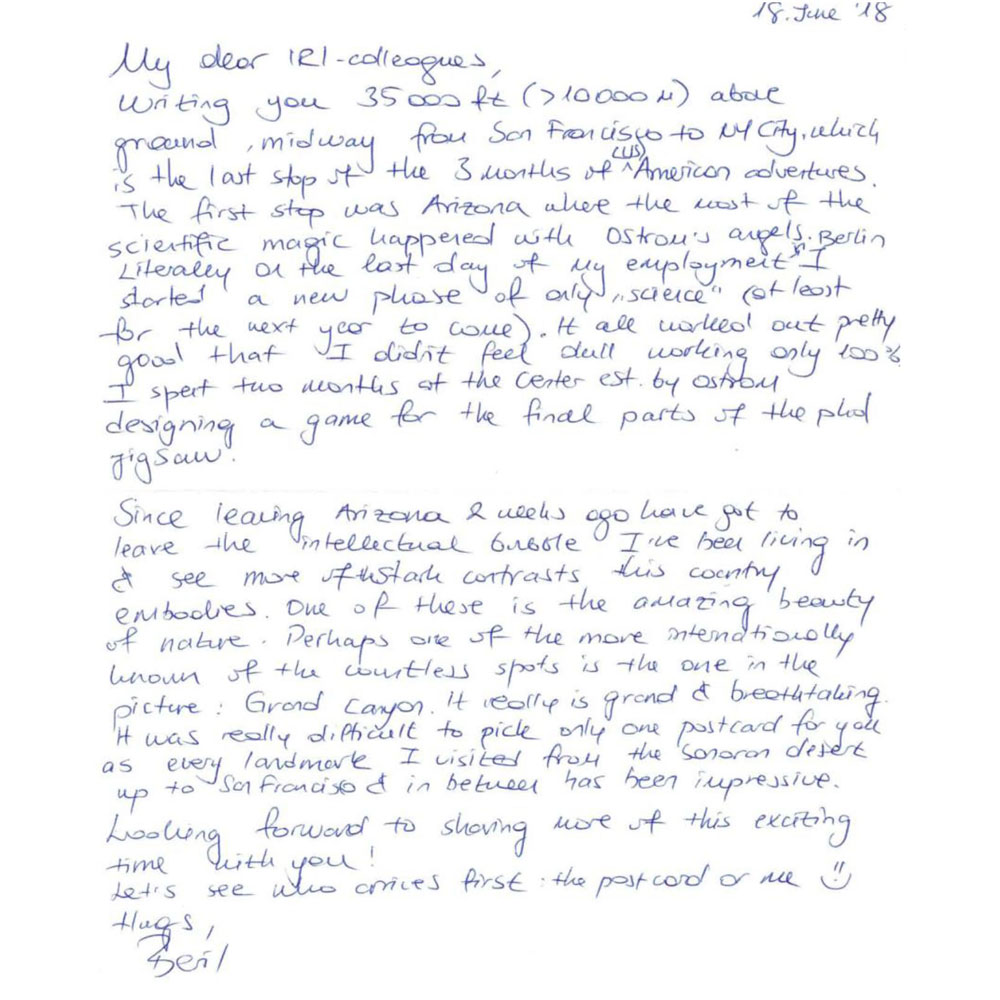 18. June '18
My dear IRI-colleagues,
Writing you 35000 ft (>10000 m) above
ground, midway from San Francisco to NY City, which
is the last stop of the 3 months of (US) American adventures.
The first stop was Arizona where the most of the
scientific magic happened with Ostrom's angels.
Literaley on the last day of my employment * Berlin I
started a new phase of only „science" (at least
for the next year to come). It all worked out pretty
good that I didn't feel dull working only 100%
I spent two months at the Center est. by Ostrom
designing a game for the final parts of the phd
jigsaw.
Since leaving Arizona 2 weeks ago have got to
leave the intellectual bubble I've been living in
& see more of the stark contrasts this country
embodies. One of these is the amazing beauty
of nature. Perhaps one of the more internationally
known of the countless spots is the one in the
picture: Grand Canyon. It really is grand & breathtaking.
It was really difficult to pick only one postcard for you
as every landmark I visited from the Sonoran desert
up to San Francisco & in between has been impressive.
Looking forward to sharing more of this exciting
time with you!
Let's see who arrives first: the postcard or me
Hugs,
Beril